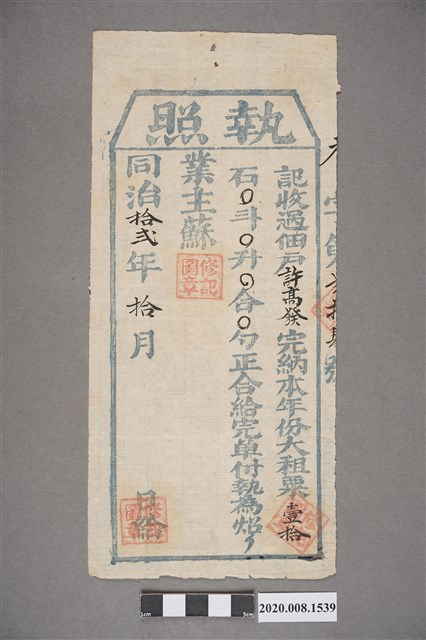 執照
記收過佃戶許高發完納本年份大租粟壹拾
石〇斗〇升〇合〇勺正合給完单付執為炤
業主蘇
修記圖章
同治拾弍年拾月
日給
號
2020.008.1539